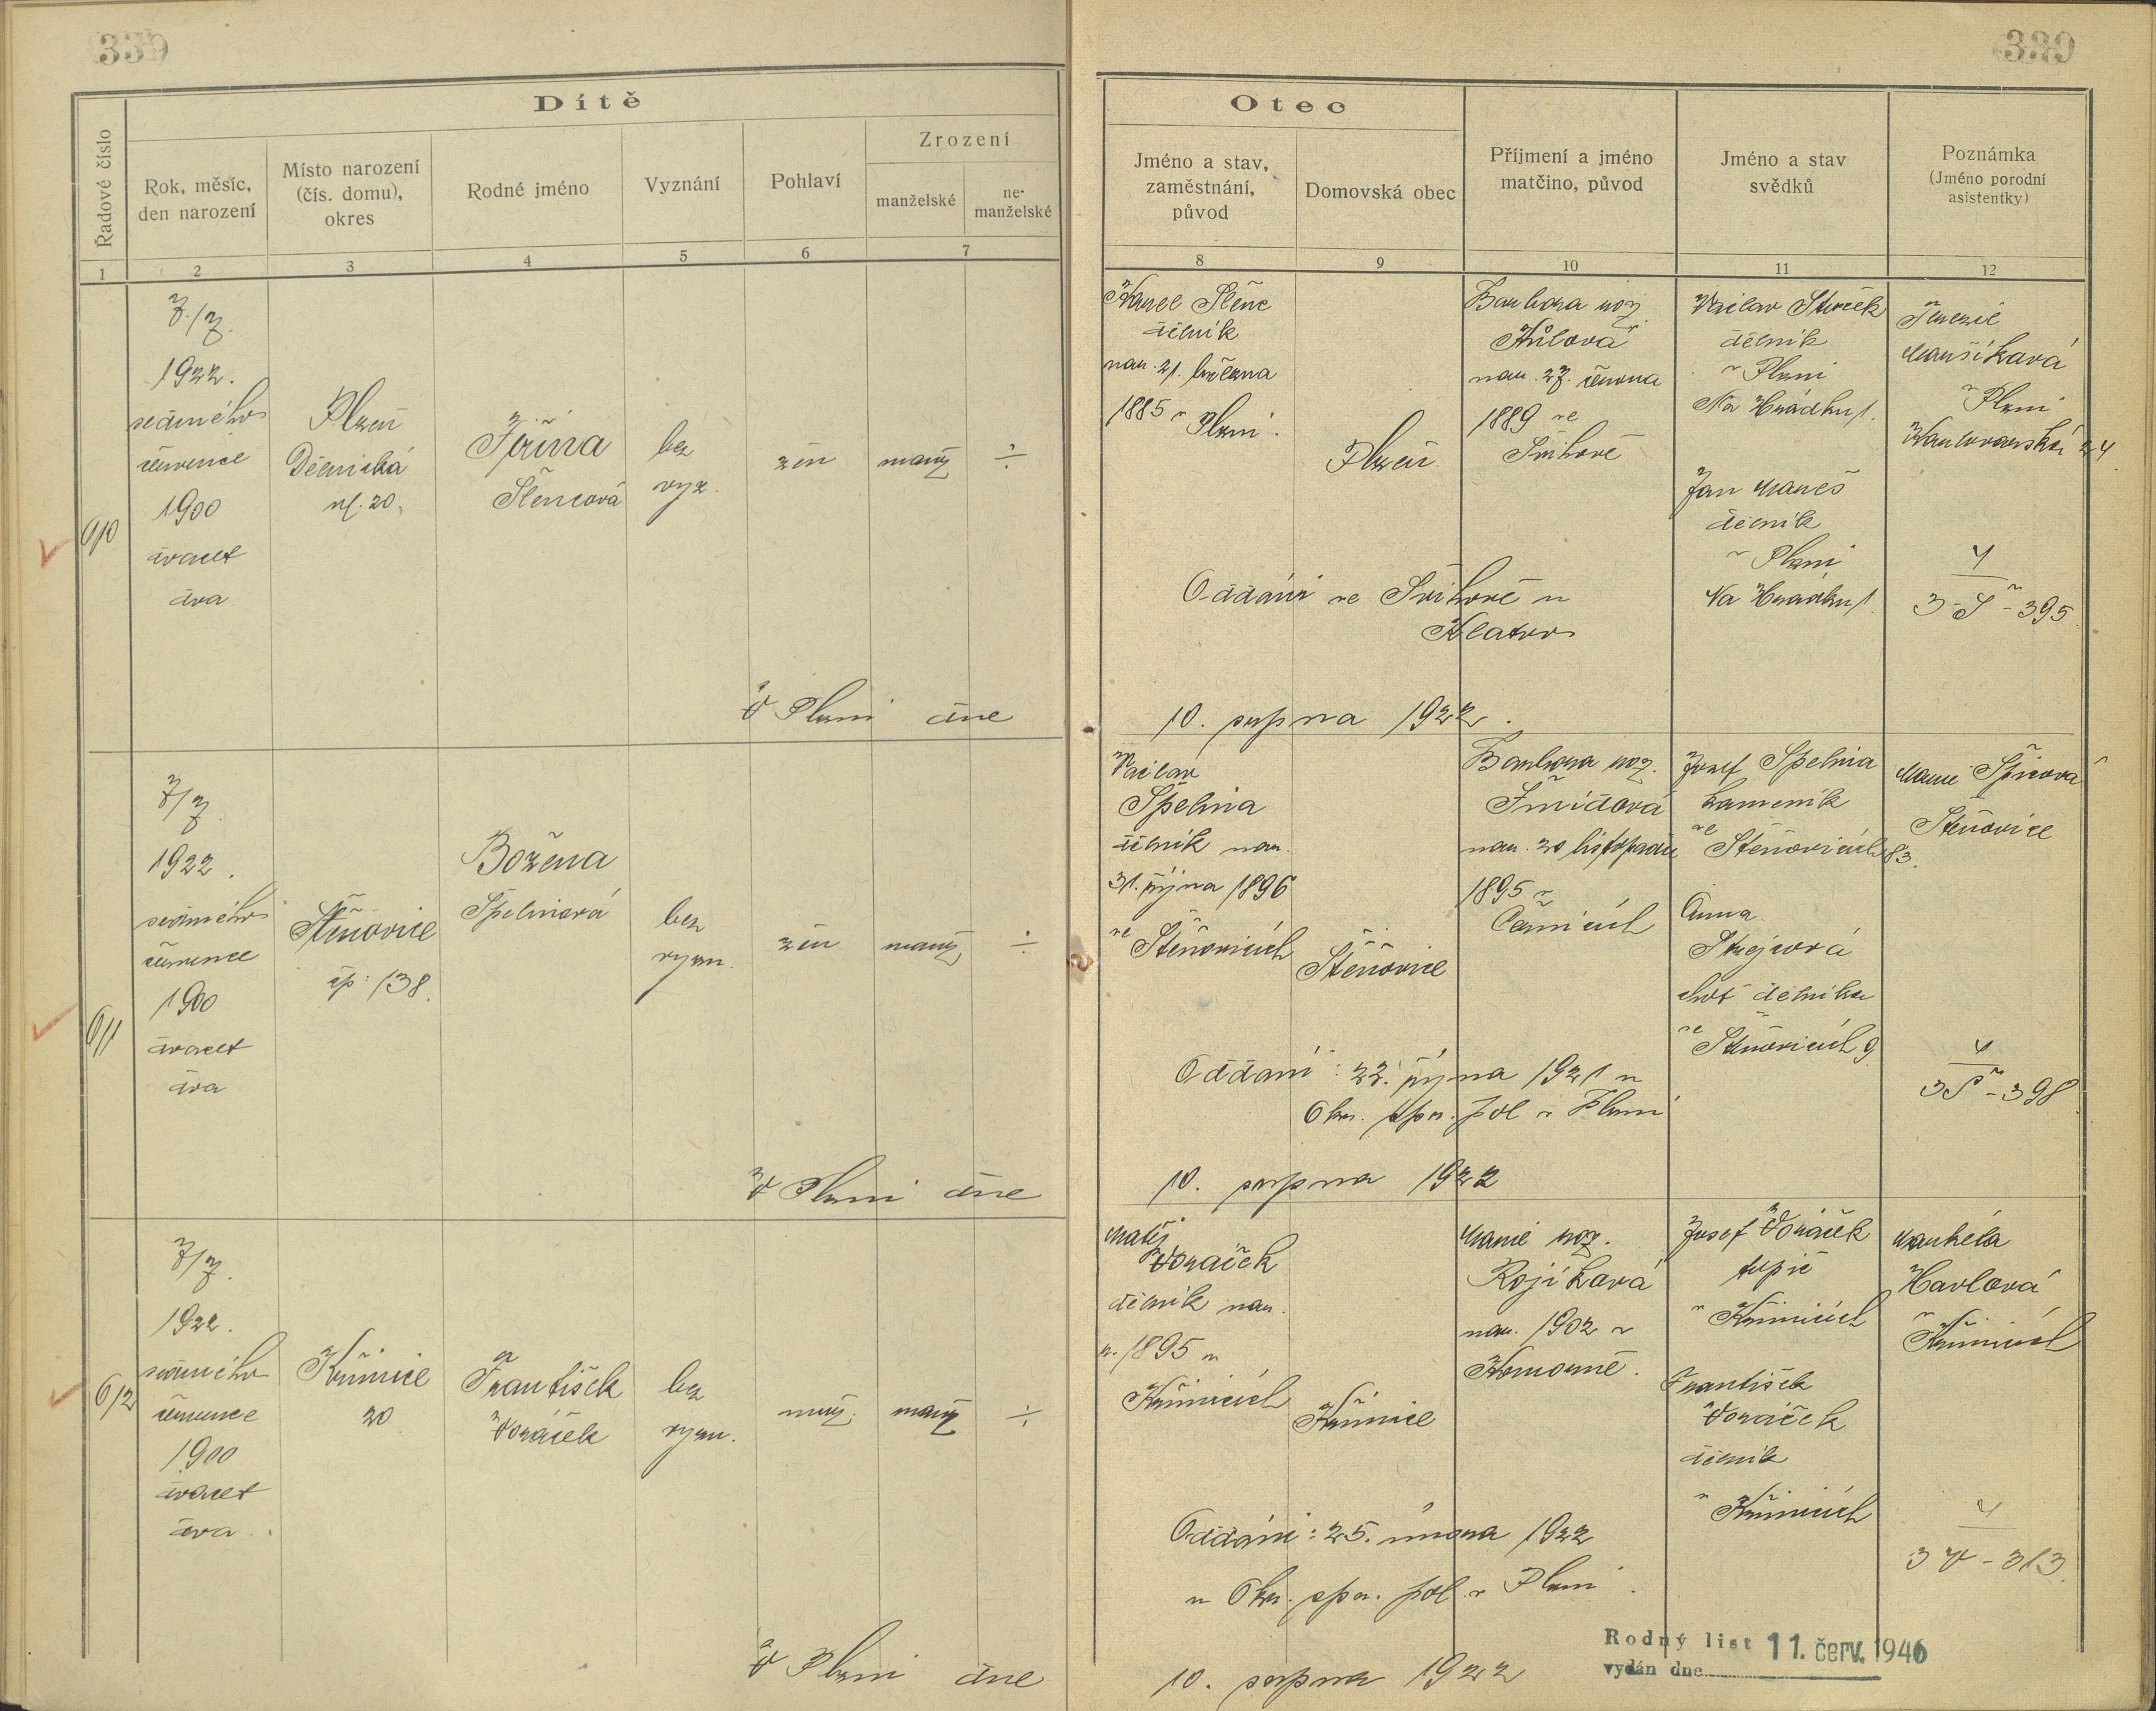 339
339
Dítě
Řadové číslo
Rok, měsíc,
den narození
Místo narození
(čís. domu),
okres
Rodné jméno
Vyznání
Pohlaví
Zrození
manželské
ne-
manželské
1
2
3
4
5
6
7
Otec
Jméno a stav,
zaměstnání,
původ
Domovská obec
Příjmení a jméno
matčino, původ
Jméno a stav
svědků
Poznámka
(Jméno porodní
asistentky)
8
9
10
11
12
610
7./7.
1922.
sedmého
července
1900
dvacet
dva
Plzeň
Dělnická
ul. 20.
Jiřina
Šlencová
bez
vyz.
žen
manž
÷
Karel Šlenc
dělník
nar. 21. března
1885 v Plzni.
Plzeň
Barbora roz.
Kůlová
nar. 27. června
1889 ve
Švihově
Václav
dělník
v Plzni
Na Hrádku 1.
Jan Mareš
dělník
v Plzni
Na Hrádku 1.
Terezie
Maušíková
v Plzni
Karlovarská 24.
Oddáni ve Švihově u
Klatov
4
3-Š-395.
V Plzni dne
10. srpna 1922.
611
7/7.
1922.
sedmého
července
1900
dvacet
dva
Štěnovice
čp: 138.
Božena
Špelinová
bez
vyzn.
žen
manž
÷
Václav
Špelina
dělník nar.
31. října 1896
ve Štěnovicích
Štěnovice
Barbora roz.
Šmídová
nar. 20 listopadu
1895 v
Černicích
Josef Špelina
kameník
ve Štěnovicích 83.
Anna
Strejcová
choť dělníka
ve Štěnovicích 9
Marie Špicová
Štěnovice
Oddáni: 22. října 1921 u
Okr. spr. pol v Plzni
4
3Š-398.
V Plzni dne
10. srpna 1922
612
7/7.
1922.
sedmého
července
1900
dvacet
dva.
Křimice
20
František
Voráček
bez
vyzn.
muž.
manž
÷
Matěj
Voráček
dělník nar.
r. 1895 v
Křimicích
Křimice
Marie roz.
Rojíková
nar. 1902 v
Josef Voráček
topič
v Křimicích
František
Voráček
dělník
v Křimicích
Markéta
Havlová
v Křimicích
Oddáni: 25. února 1922
u Okr. spr. pol. v Plzni.
4
3V-313.
V Plzni dne
10. srpna 1922
Rodný list 11. červ. 1946
vydán dne